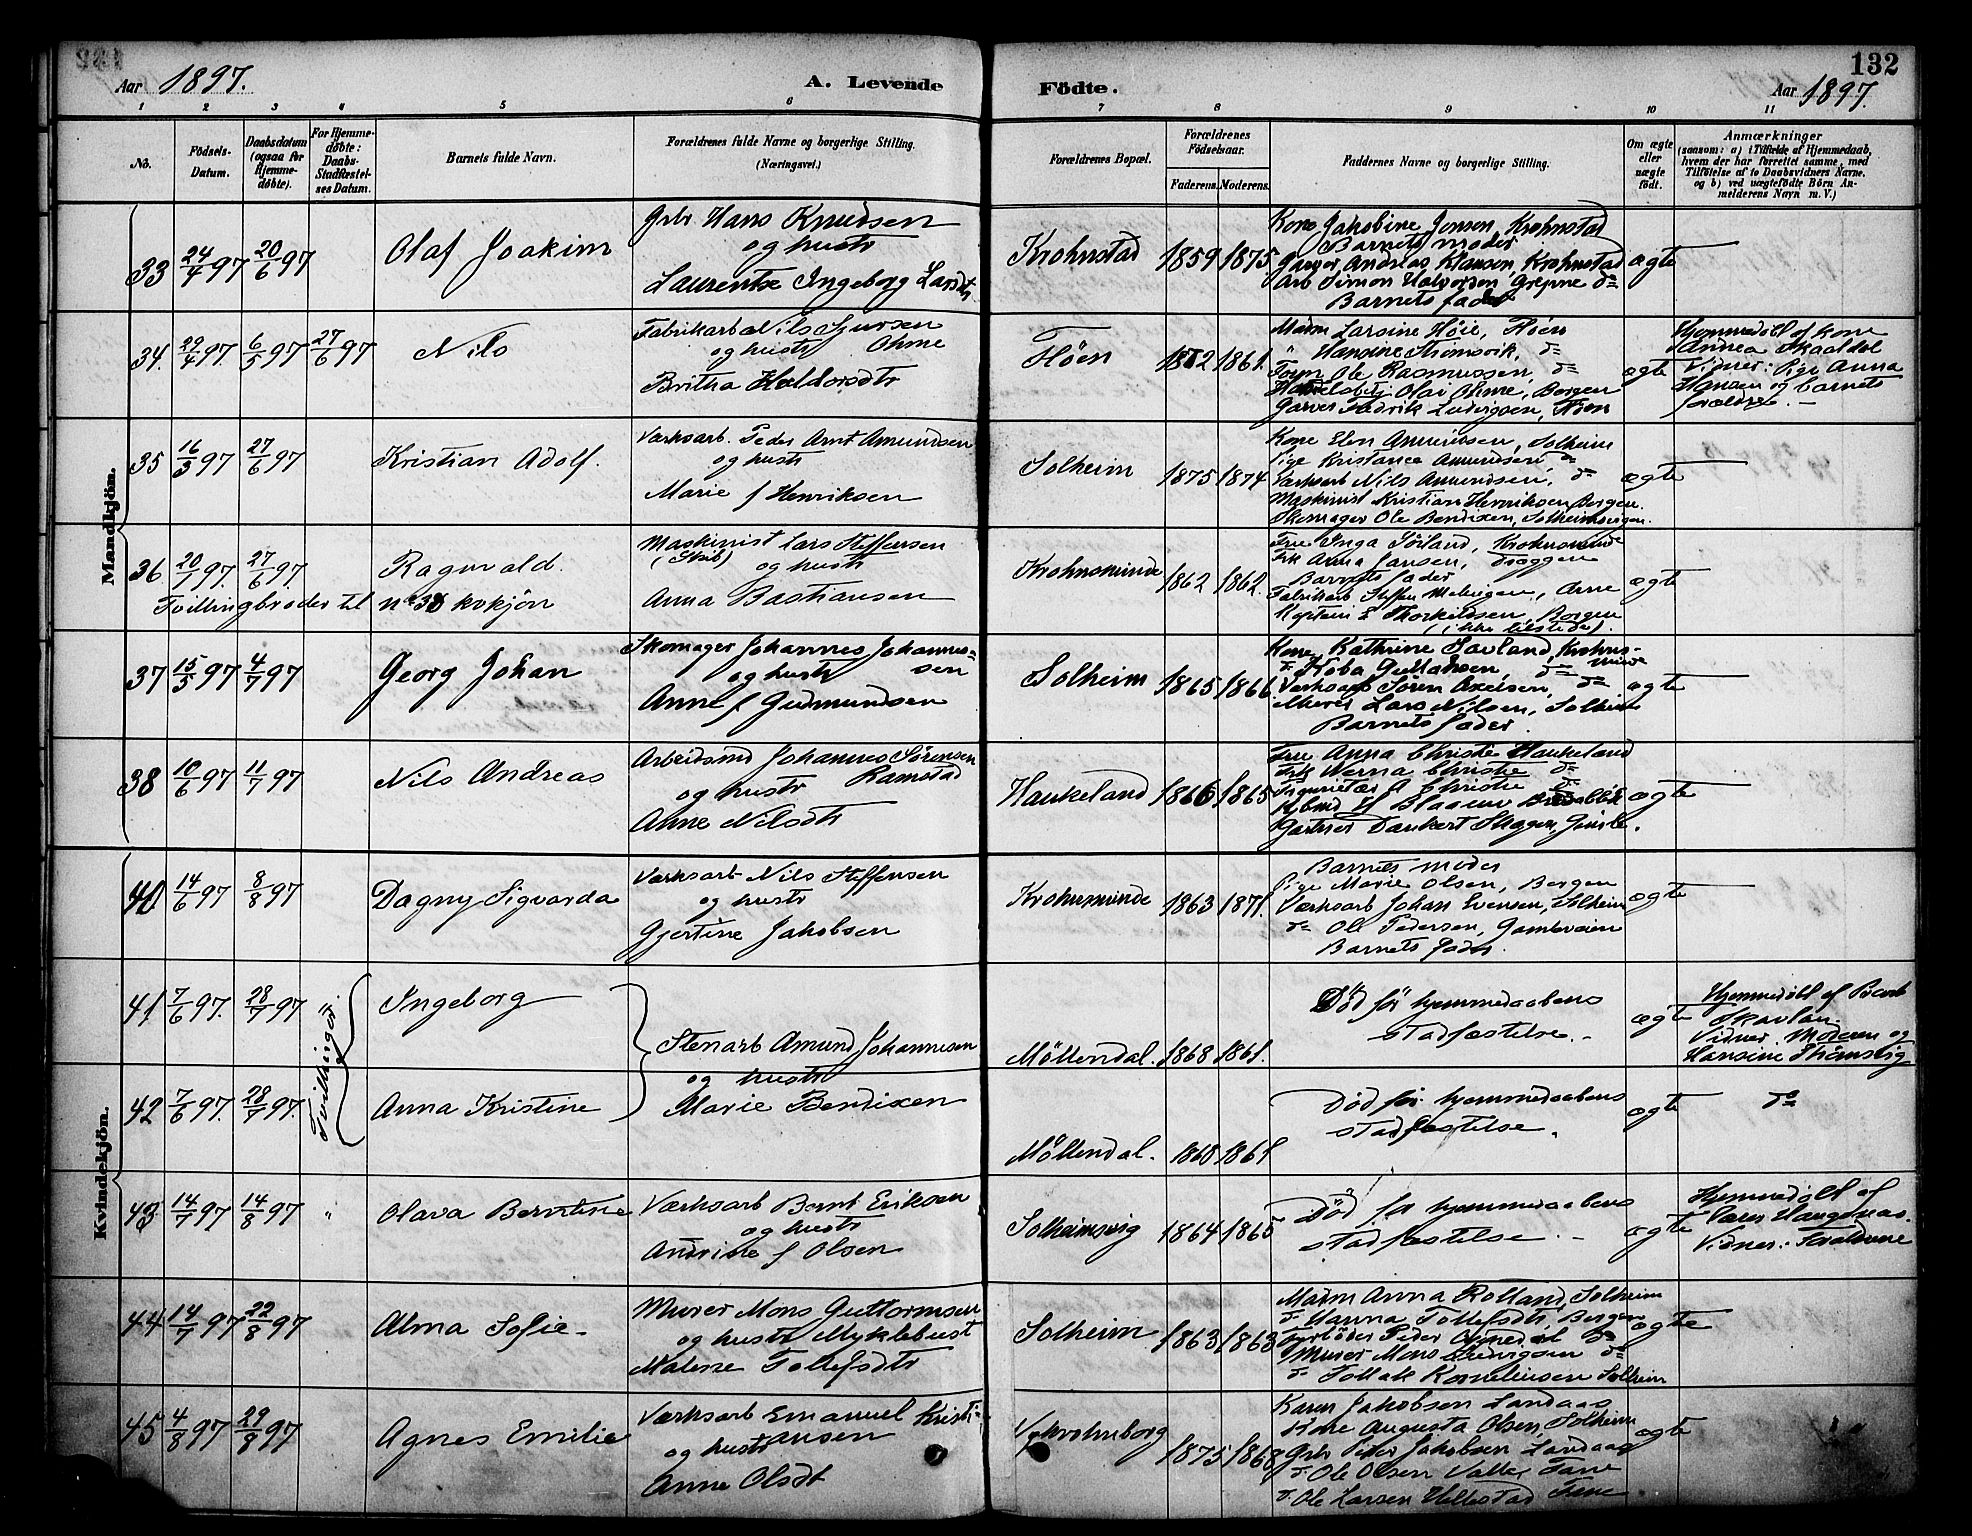 132
Aar 1897.
A. Levende Födte.
Aar 1897.
1 2 3 4 5 6 7 8 9 10 11
No.
Födsels-Datum.
Daabsdatum (ogsaa for Hjemmedøbte).
For Hjemmedøbte: Daabs-Stadfæstelses Datum.
Barnets fulde Navn.
Forældrenes fulde Navne og borgerlige Stilling. (Næringsvei.)
Forældrenes Bopæl.
Forældrenes Födselsaar.
Faderens. Moderens.
Faddernes Navne og borgerlige Stilling.
Om ægte eller uægte födt.
Anmærkninger
(saasom: a) i Tilfælde af Hjemmedaab, hvem der har forrettet samme, med Tilföielse af to Daabsvidners Navne, og b) ved uægtefödte Börn Anmelderens Navn m. V.)
Mandkjön.
33 24/4 97 20/6 97 Olaf Joakim
Grbr Hans Knudsen
og hustr
Laurentse Ingeborg Larsdtr
Krohnstad 1859 1875
Kone Jakobine Jonsen, Krohnstad
Barnets moder
Garver Andreas Klausen, Krohnstad
Arb Simon Halvorsen Grepne do
Barnets fader
ægte
34. 29/4 97. 6/5 97 27/6 97 Nils
Fabrikarb Nils Sjursen
og hustr Ohme
Britha Haldorsdtr
Fløen 1861.
Madm Larsine Høie, Fløen
" Hansine Strømsvik, do
Ole Rasmussen, do
Olai Ohme, Bergen
Garver Fredrik Ludvigsen, Fløen
ægte
Hjemmedøbt af kone
Andrea Skaaldal
Vidner: Pige Anna
Hansen og barnets
forældre. —
35 16/3 97 27/6 97 Kristian Adolf.
Værksarb. Peder Arnt Amundsen
og hustr
Marie f Henriksen
Solheim 1875 1874
Kone Elen Amundsen, Solheim
Pige Kristance Amundsen do
Værksarb Nils Amundsen, do
Maskinist Kristian Henriksen Bergen.
Skomager Ole Bendixen, Solheimsvigen.
ægte
36 20/1 97. 27/6 97. Ragnvald.
Tvillingbroder til no 38 kvkjön
Maskinist Lars Steffensen
(Skib) og hustr
Anna Bastiansen
Krohnsminde 1862 1862.
Frue Inga Søiland, Krohnsminde
Frk Anna Jansen, Dræggen
Barnets fader
Fabrikarb Steffen Arne
Kaptein Thorkildsen, Bergen
(ikke tilstede).
ægte
37 15/5 97 4/7 97 Georg Johan
Skomager Johannes Johannes-
og hustr sen
Anne f Gudmundsen
Solheim 1865 1866
Kone Kathrine Søvland, Krohns-
minde
Værksarb Søren Axelsen, do
Murer Lars Nilsen, Solheim
Barnets fader.
ægte
38 10/6 97 11/7 97 Nils Andreas
Arbeidsmd Johannes Sørensen
og hustr Ramstad
Anne Nilsdtr
Haukeland 1866 1865
Frue Anna Christie Haukeland
Frk Werna Christie do
A Christie do
Gartner Dankert Skagen, Gimle.
ægte
Kvindekjön.
40 14/6 97. 8/8 97 Dagny Sigvarda
Værksarb Nils Steffensen
og hustr
Gjertine Jakobsen
Krohnsminde 1863 1871.
Barnets moder
Pige Marie Olsen, Bergen
Værksarb Johan Evensen, Solheim
do Ole Pedersen, Gamleveien
Barnets fader.
ægte
41 7/6 97. 28/7 97 Tvillinger Ingeborg
Stenarb Amund Johannesen
og hustr
Marie Bendixen
Møllendal. 1868 1861.
Død før hjemmedaabens
stadfæstelse. –
ægte
Hjemmedøbt af
Skavlan.
Vidner. Moderen og
Hansine Strømsvig
42 7/6 97. 28/7 97. Anna Kristine
Møllendal. 1868 1861
Død før hjemmedaabens
stadfæstelse.
ægte
do
43 14/7 97 14/8 97 " Olava Berntine
Værksarb Bernt Eriksen
og hustr
Andrine f Olsen
Solheimsvig 1864 1865
Død før hjemmedaabens
stadfæstelse. –
ægte
Hjemmedøbt af
Haugsnæs.
Vidner: Forældrene
44 14/7 97 22/8 97 Alma Sofie.
Murer Mons Guttormsen
og hustr Myklebust
Malene Tollefsdtr
Solheim 1863 1863
Madm Anna Rolland, Solheim
do Hanna Tollefsdtr, Bergen
Fyrbøder Peder do
Murer Mons Ludvigsen do
do Tollak Kornelinsen Solheim
ægte
45 4/8 97 29/8 97 Agnes Emilie
Værksarb Emanuel Kristi-
og hustr ansen
Anne Olsdt
Nykrohnborg 1875 1868
Karen Jakobsen Landaas
Kone Augusta Olsen, Solheim
Grbr Peder Jakobsen Landaas
do Ole Olsen Valle, Fane
do Ole Larsen Hellestad Fane
ægte